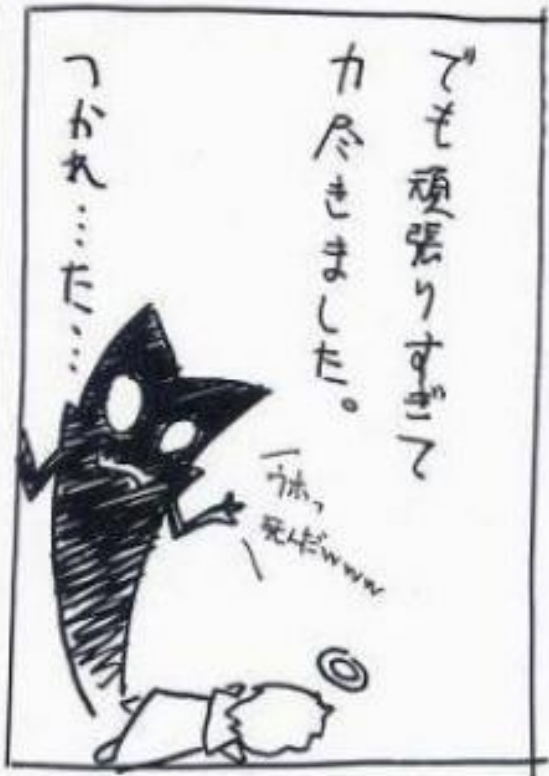 でも頑張りすぎて
力尽きました。
つかれ…た…
ウホっ
死んだwww